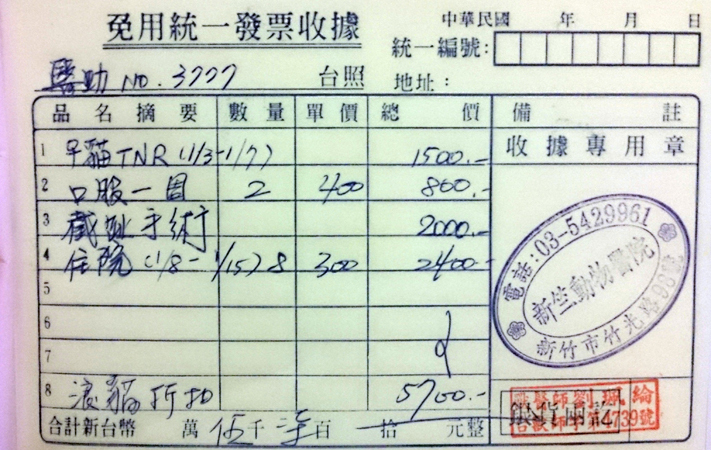 免用統一發票收據
中華民國 年 月 日
統一編號:
醫助 NO. 3777 台照
地址:
品名摘要 數量 單價 總價 備註
收據專用章
1 TNR (1/3-1/7) 1500.-
2 口服一週 2 400 800.-
3 截趾手術 2000.-
4 住院 (1/8-1/15) 8 300 2400.-
5
6
7
8 浪貓折扣 5700.-
合計新台幣 萬 伍千柒百 拾 元整
電話:03-5429961
新竺動物醫院
新竹市竹光路98號
銀貨兩訖
獸醫師劉珮綸
4739號